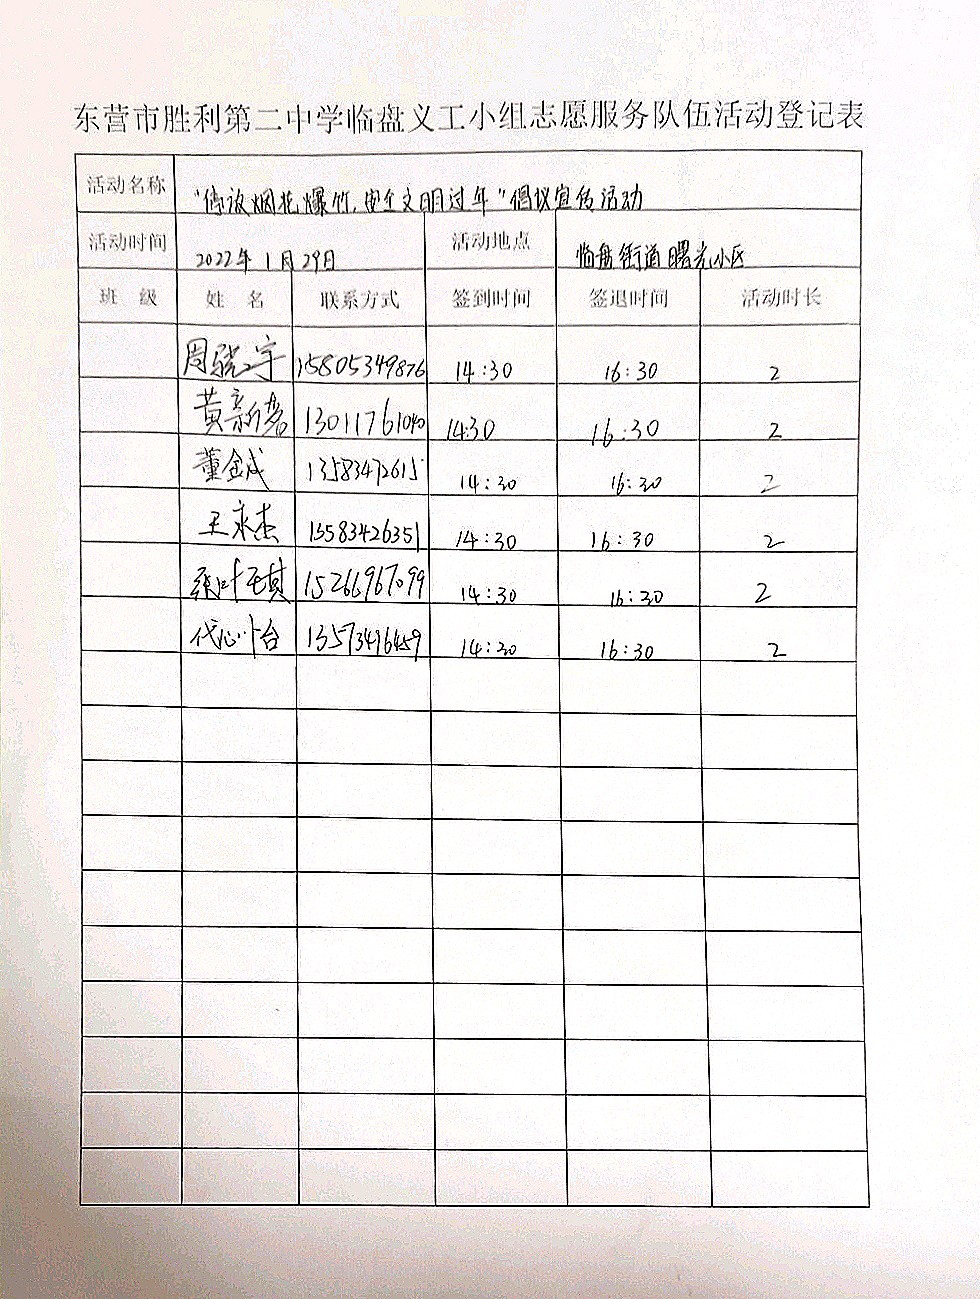 东营市胜利第二中学临盘义工小组志愿服务队伍活动登记表
活动名称 "停放烟花爆竹,安全文明过年"倡议宣传活动
活动时间 2022年1月29日 活动地点 临盘街道曙光小区
班 级 姓 名 联系方式 签到时间 签退时间 活动时长
周骁宇 15805349876 14:30 16:30 2
黄新茗 13011761040 14:30 16:30 2
董金成 13583472615 14:30 16:30 2
王永杰 13583426351 14:30 16:30 2
张叶琪 15266967099 14:30 16:30 2
代心怡 13573496459 14:30 16:30 2